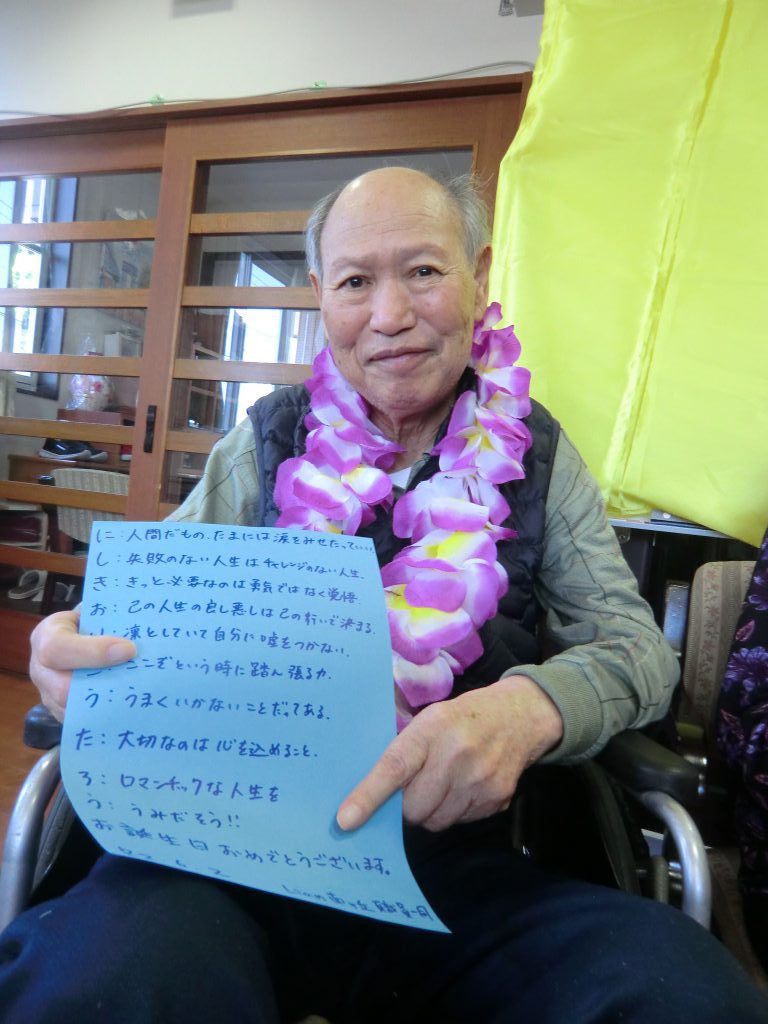 に：人間だもの、たまには涙をみせたっていい。
し：失敗のない人生はチャレンジのない人生。
き：きっと必要なのは勇気ではなく覚悟。
お：己の人生の良し悪しは己の行いで決まる。
り：凛としていて自分に嘘をつかない。
ここぞという時に踏ん張る力。
う：うまくいかないことだってある。
た：大切なのは心を込めること。
ろ：ロマンチックな人生を
う：うみだそう!!
お誕生日おめでとうございます。
職員一同